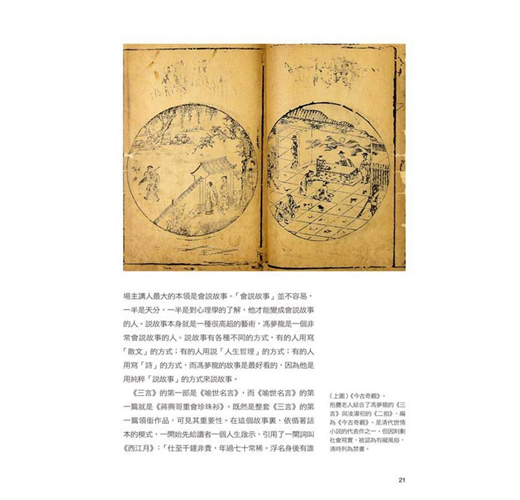 場主講人最大的本領是會說故事。「會說故事」並不容易，
一半是天分，一半是對心理學的了解，他才能變成會說故事
的人。說故事本身就是一種很高超的藝術，馮夢龍是一個非
常會說故事的人。說故事有各種不同的方式，有的人用寫
「散文」的方式；有的人用說「人生哲理」的方式；有的人
用寫「詩」的方式，而馮夢龍的故事是最好看的，因為他是
用純粹「說故事」的方式來說故事。
《三言》的第一部是《喻世名言》，而《喻世名言》的第
一篇就是《蔣興哥重會珍珠衫》。既然是整套《三言》的第
一篇領銜作品，可見其重要性。在這個故事裏，依循著話
本的模式，一開始先給讀者一個人生啟示，引用了一闋詞叫
《西江月》：「仕至千鍾非貴，年過七十常稀。浮名身後有誰
（上圖）《今古奇觀》。
抱甕老人結合了馮夢龍的《三
言》與凌濛初的《二拍》，編
為《今古奇觀》。是清代世情
小說的代表作之一，但因刻劃
社會寫實，被認為有礙風俗，
清時列為禁書。
21